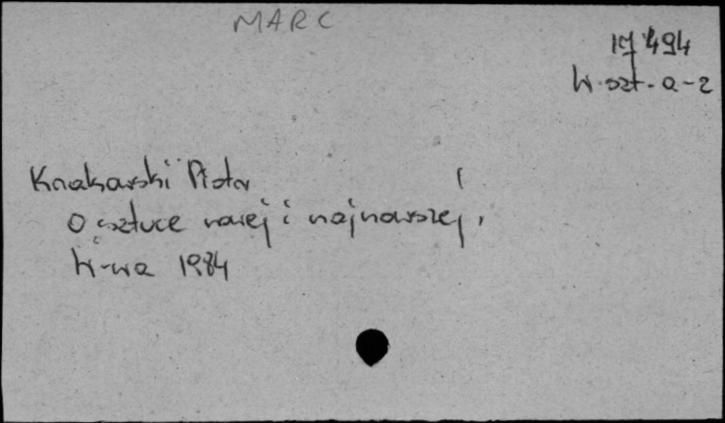 MARC
17494
W-szt-a-2
Krakowski Piotr
O sztuce nowej i najnowszej,
W-wa 1984